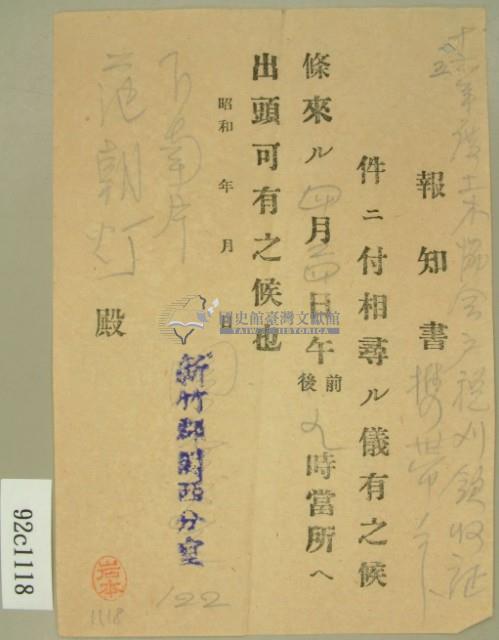 報知書
件ニ付相尋ル儀有之候
條來ル四月 日午前後九時當所ヘ
出頭可有之候也
昭和 年 月 日
新竹郡關西分室
下南片
范朝灯 殿
岩本
122
1118
國史館臺灣文獻館
TAIWAN HISTORICA
92c1118